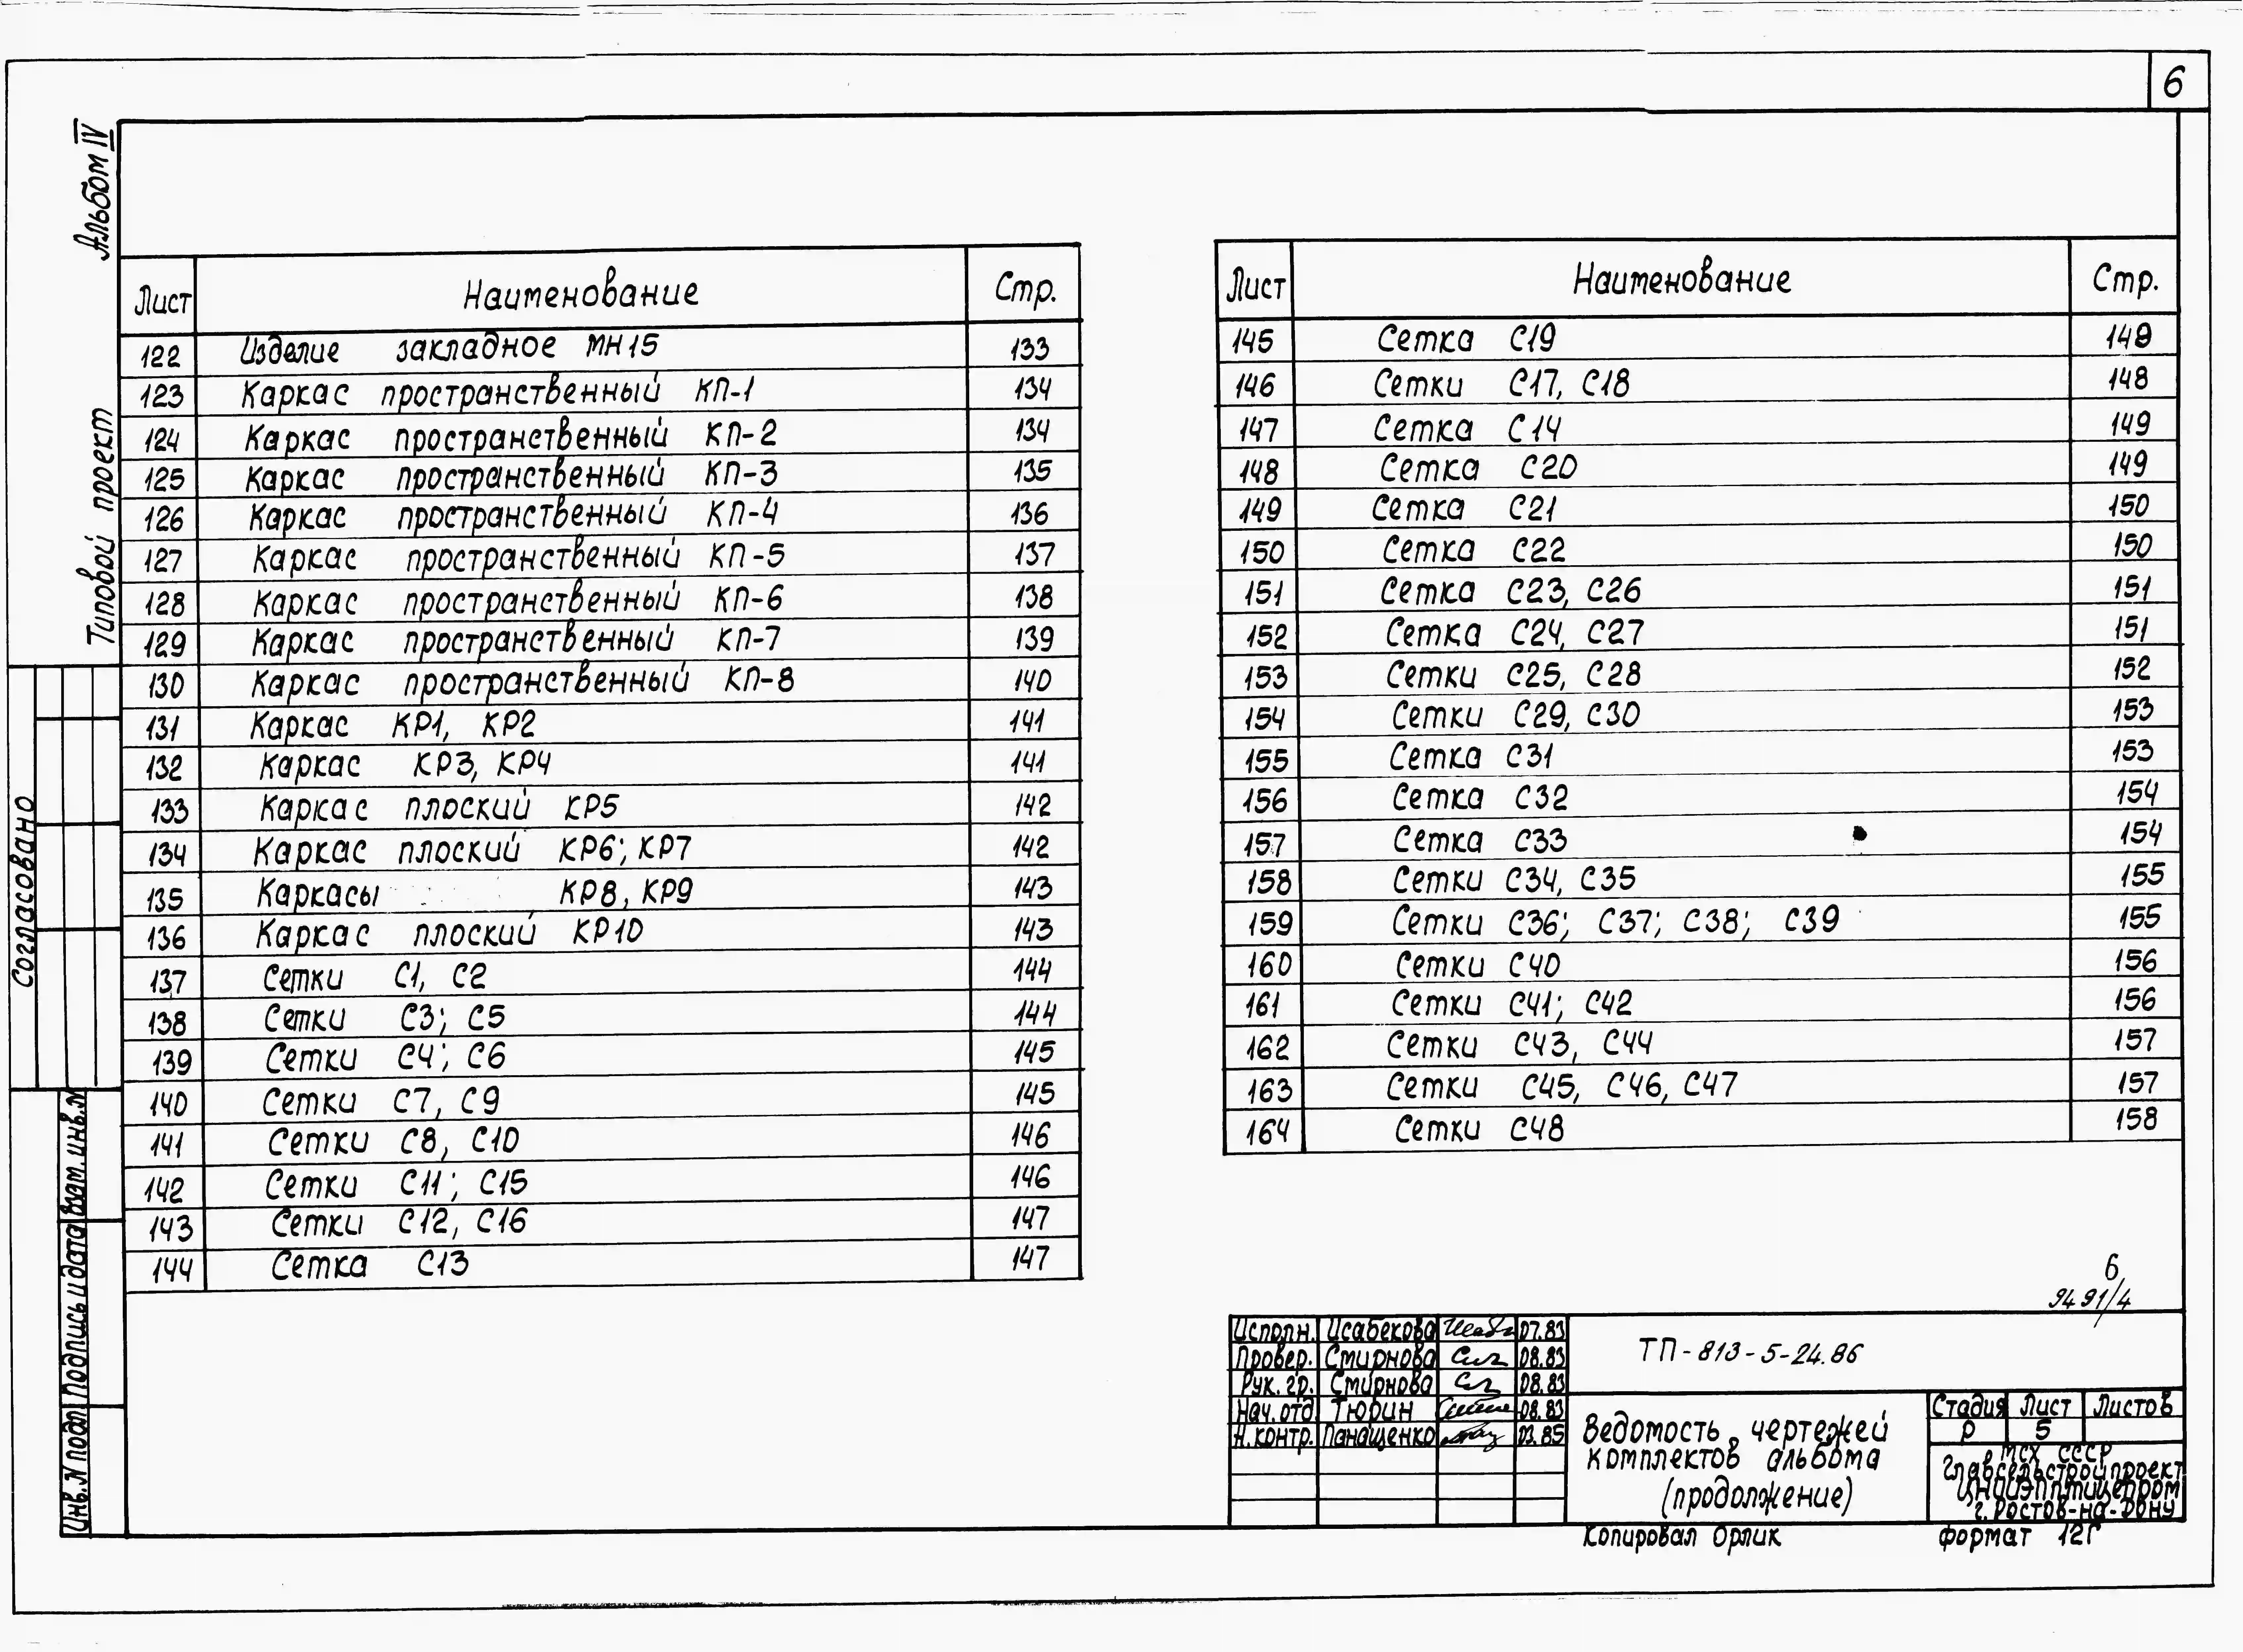 6
Альбом IV
Типовой проект
Согласовано
Инв.N подл. Подпись и дата Взам. инв.N
Лист Наименование Стр.
122 Изделие закладное МН15 133
123 Каркас пространственный КП-1 134
124 Каркас пространственный КП-2 134
125 Каркас пространственный КП-3 135
126 Каркас пространственный КП-4 136
127 Каркас пространственный КП-5 137
128 Каркас пространственный КП-6 138
129 Каркас пространственный КП-7 139
130 Каркас пространственный КП-8 140
131 Каркас КР1, КР2 141
132 Каркас КР3, КР4 141
133 Каркас плоский КР5 142
134 Каркас плоский КР6; КР7 142
135 Каркасы КР8, КР9 143
136 Каркас плоский КР10 143
137 Сетки С1, С2 144
138 Сетки С3; С5 144
139 Сетки С4; С6 145
140 Сетки С7, С9 145
141 Сетки С8, С10 146
142 Сетки С11; С15 146
143 Сетки С12, С16 147
144 Сетка С13 147
Лист Наименование Стр.
145 Сетка С19
146 Сетки С17, С18 148
147 Сетка С14 149
148 Сетка С20 149
149 Сетка С21 150
150 Сетка С22 150
151 Сетка С23, С26 151
152 Сетка С24, С27 151
153 Сетки С25, С28 152
154 Сетки С29, С30 153
155 Сетка С31 153
156 Сетка С32 154
157 Сетка С33 154
158 Сетки С34, С35 155
159 Сетки С36; С37; С38; С39 155
160 Сетки С40 156
161 Сетки С41; С42 156
162 Сетки С43, С44 157
163 Сетки С45, С46, С47 157
164 Сетки С48 158
6
9491/4
Исполн. Исабекова 07.83
Провер. Смирнова 08.83
Рук. гр. Смирнова 08.83
Нач. отд Тюрин 08.83
Н. контр. Панащенко 03.85
ТП-813-5-24.86
Ведомость чертежей
комплектов альбома
(продолжение)
Стадия Лист Листов
Р 5
МСХ СССР
Главсельстройпроект
ЦНИИЭПптицепром
г. Ростов-на-Дону
Копировал Орлик Формат 12Г